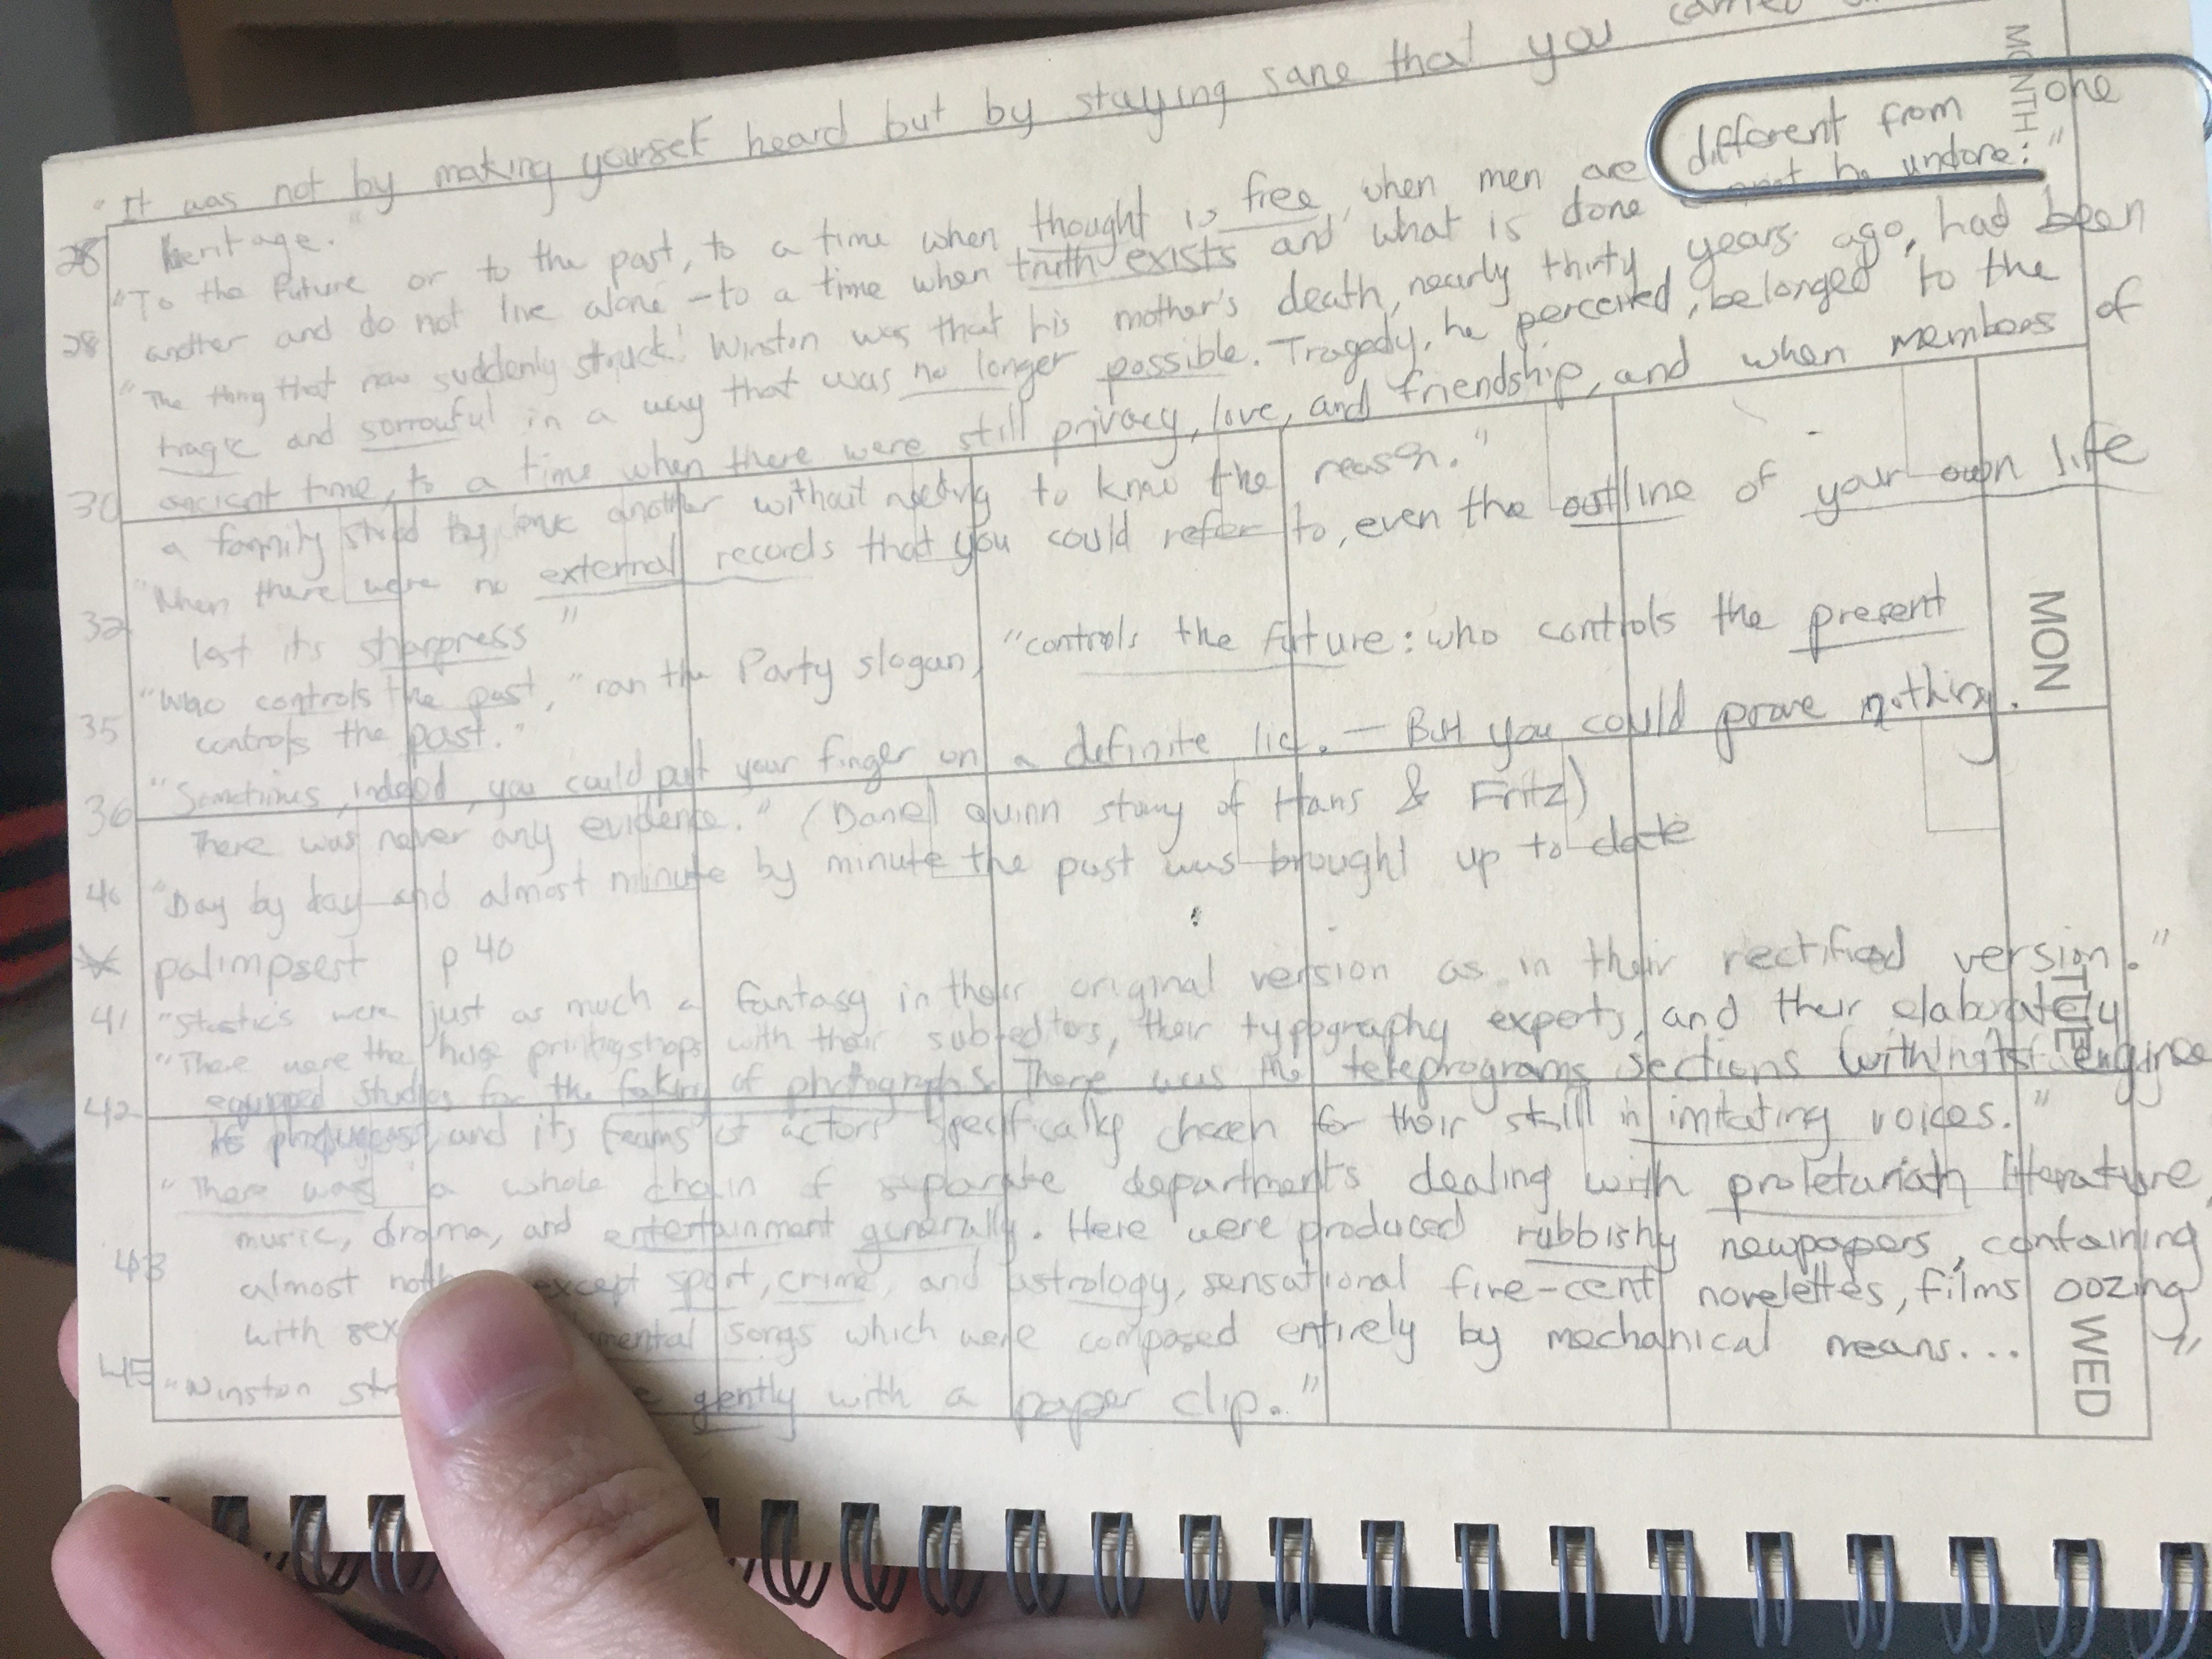 "It was not by making yourself heard but by staying sane that you carried
28 heritage."
"To the future or to the past, to a time when thought is free, when men are different from one
28 another and do not live alone - to a time when truth exists and what is done not be undone:"
"The thing that now suddenly struck Winston was that his mother's death, nearly thirty years ago, had been
tragic and sorrowful in a way that was no longer possible. Tragedy, he perceived, belonged to the
30 ancient time, to a time when there were still privacy, love, and friendship, and when members of
a family stood by one another without needing to know the reason."
"When there were no external records that you could refer to, even the outline of your own life
32 lost its sharpness"
"Who controls the past," ran the Party slogan, "controls the future: who controls the present
35 controls the past."
"Sometimes, indeed, you could put your finger on a definite lie. — But you could prove nothing.
36 There was never any evidence." (Daniel Quinn story of Hans & Fritz)
40 "Day by day and almost minute by minute the past was brought up to date
palimpsest p 40
41 "Stastics were just as much a fantasy in their original version as in their rectified version."
"There were the huge printingshops with their subeditors, their typography experts, and their elaborately
equipped studios for the faking of photographs. There was the teleprograms sections with its engine
42 its producers, and its teams of actors specifically chosen for their skill in imitating voices."
"There was a whole chain of separate departments dealing with proletarian literature,
music, drama, and entertainment generally. Here were produced rubbishy newpapers, containing
43 almost except sport, crime, and astrology, sensational five-cent novelettes, films oozing
with sex songs which were composed entirely by mechanical means... "
45 "Winston gently with a paper clip."
MONTH
MON
TUE
WED